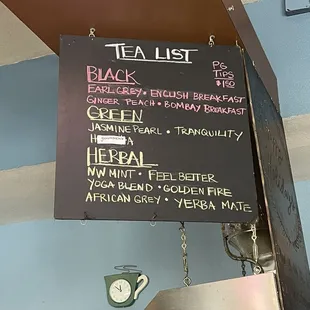 TEA LIST
BLACK
PG TIPS $1.50
EARL GREY • ENGLISH BREAKFAST
GINGER PEACH • BOMBAY BREAKFAST
GREEN
JASMINE PEARL • TRANQUILITY
HERBAL
NW MINT • FEEL BETTER
YOGA BLEND • GOLDEN FIRE
AFRICAN GREY • YERBA MATE